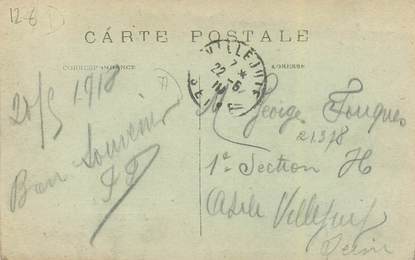 12-6
CARTE POSTALE
CORRESPONDANCE
ADRESSE
VILLEJUIF
7 *
22-5
SEINE
20/5 1918
Bon Souvenir
M George Fouques
21378
1e Section H
Asile Villejuif
Seine